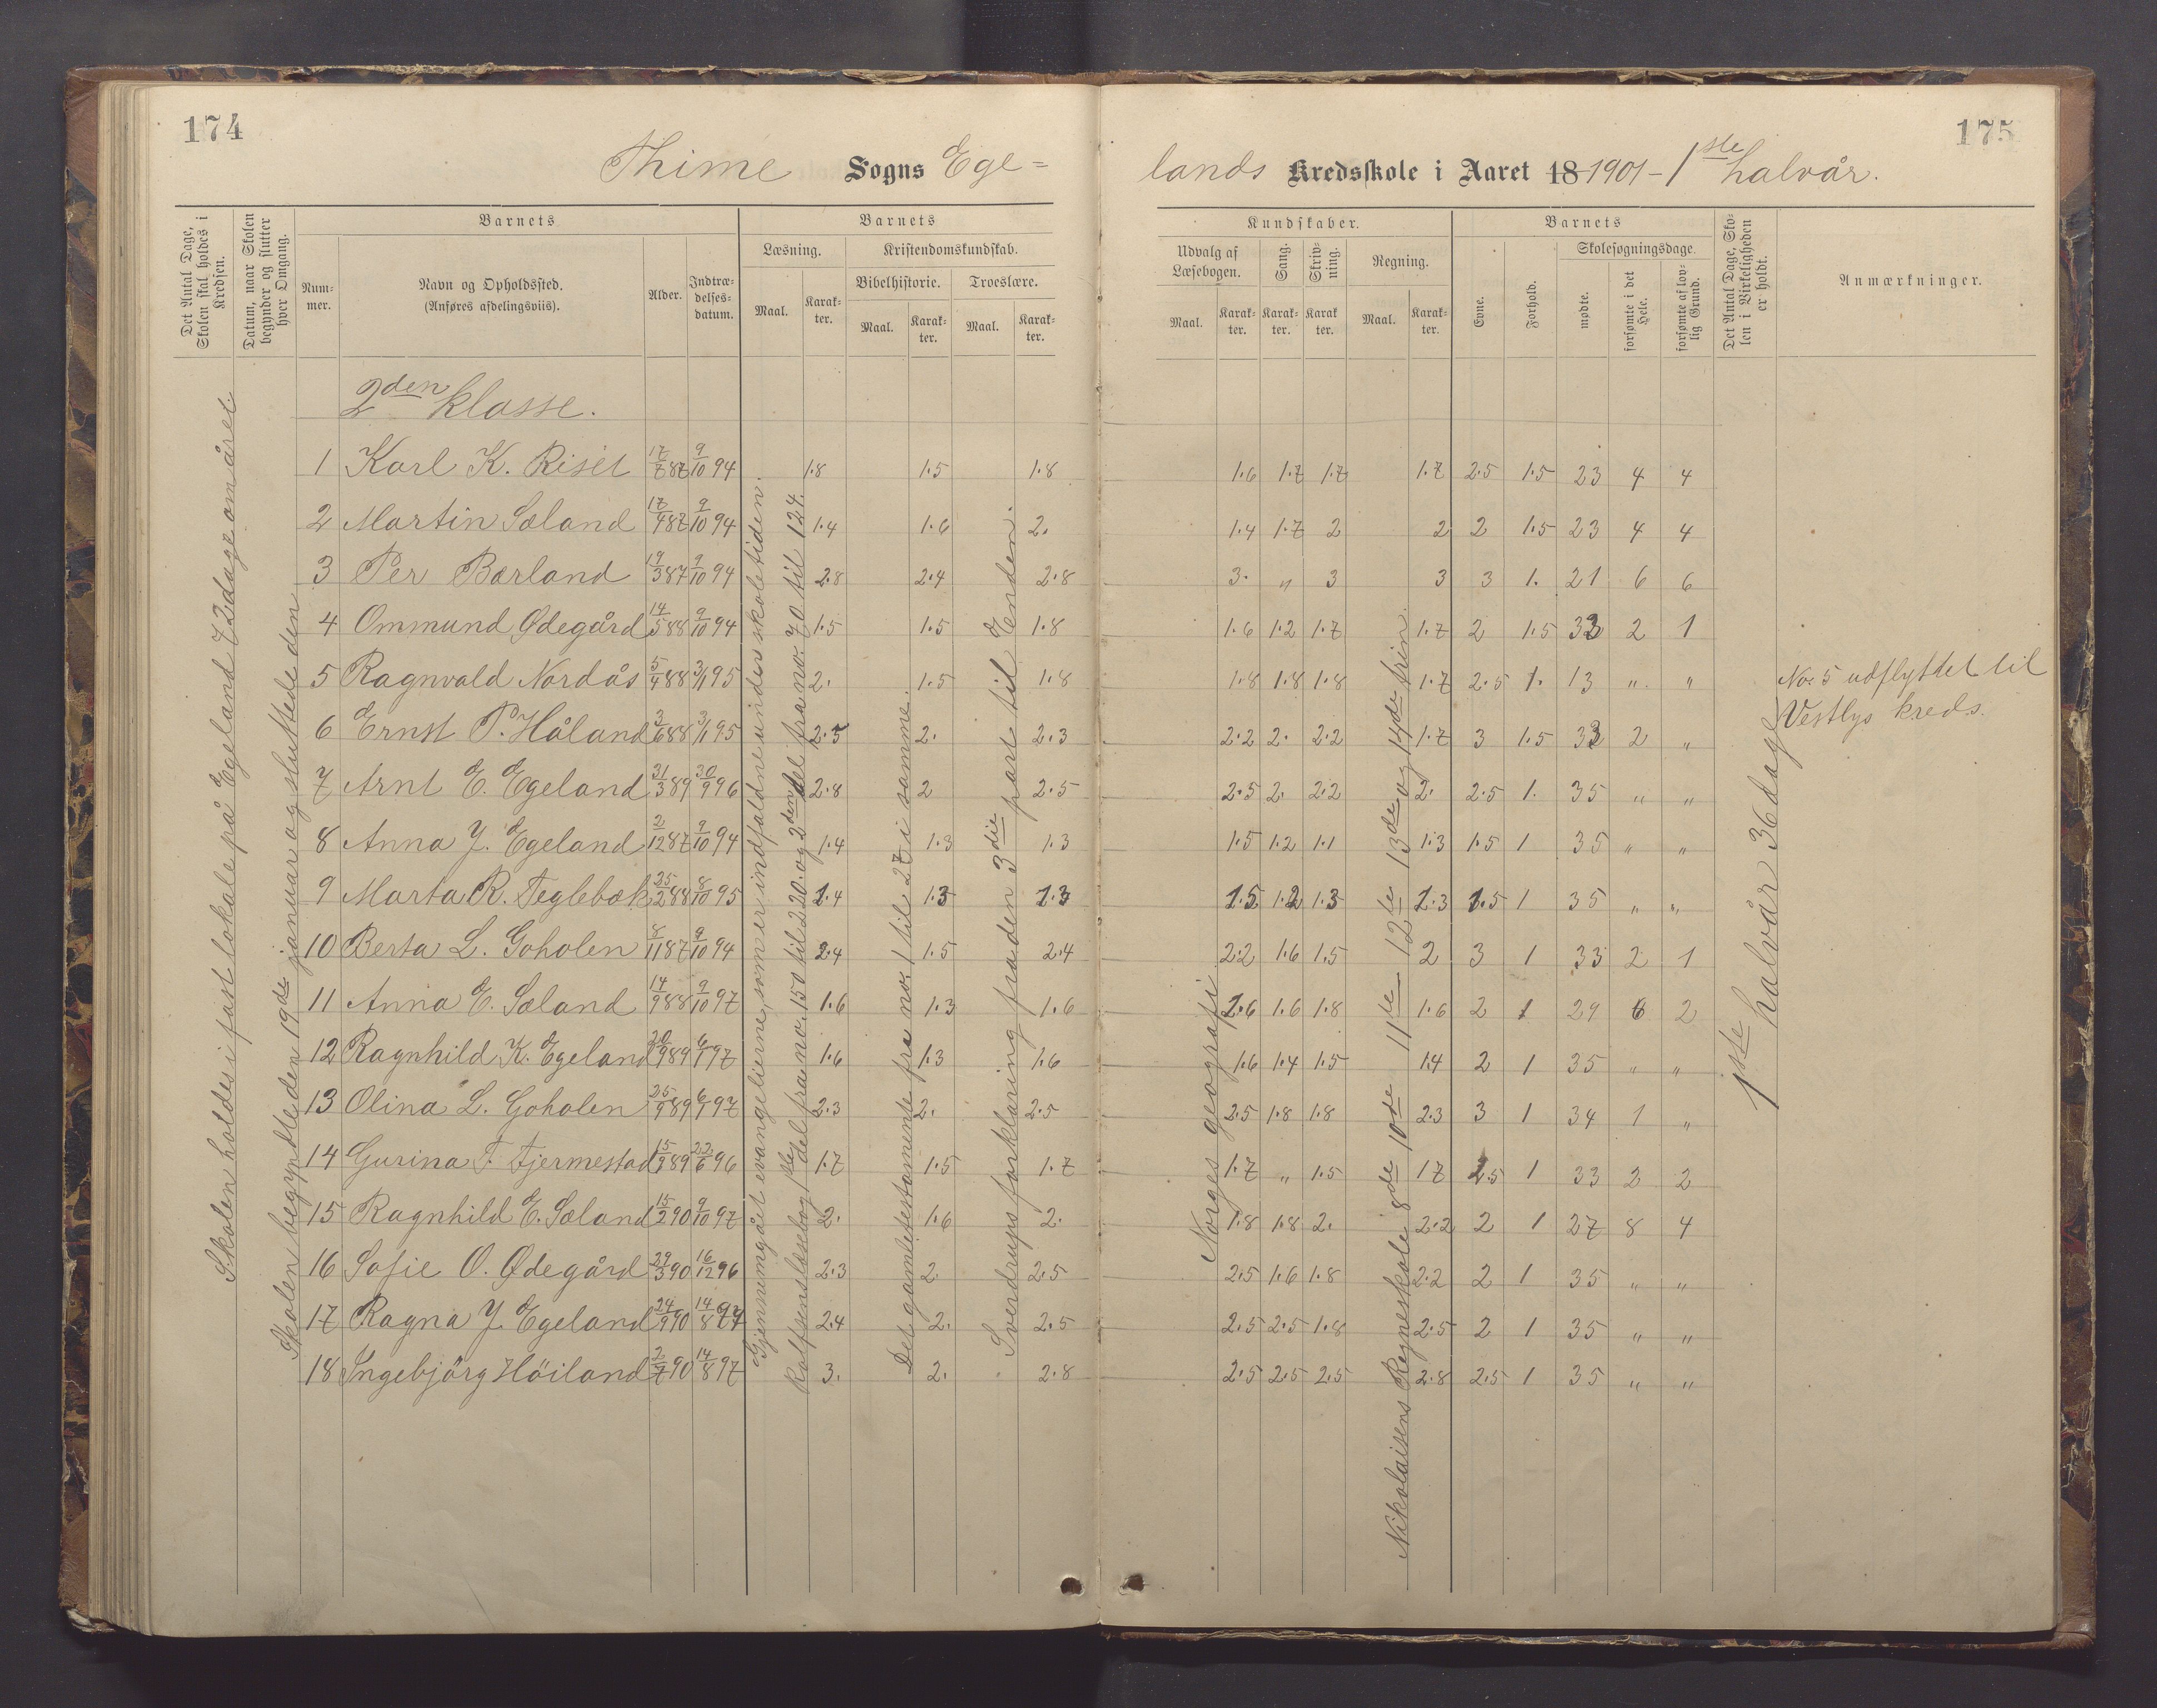 174
175
Thime Sogns Ege=
lands Kredsskole i Aaret 18-1901-1ste halvår.
Det Antal Dage, Skolen skal holdes i Kredsen.
Datum, naar Skolen begynder og slutter hver Omgang.
Barnets
Nummer.
Navn og Opholdssted.
(Anføres afdelingsviis).
Alder.
Indtrædelsesdatum.
Barnets
Læsning.
Maal.
Karakter.
Kristendomskundskab.
Bibelhistorie.
Maal.
Karakter.
Troeslære.
Maal.
Karakter.
Kundskaber.
Udvalg af Læsebogen.
Maal.
Karakter.
Sang.
Karakter.
Skrivning.
Karakter
Regning.
Maal.
Karakter.
Barnets
Evne.
Forhold.
Skolesøgningsdage.
mødte.
forsømte i det Hele.
forsømte af lovlig Grund.
Det Antal Dage, Skolen i Virkeligheden er holdt.
Anmærkninger.
Skolen holdes i fast lokale på Egeland 72 dage om året.
Skolen begyndte den 19de januar og sluttede den
2den klasse.
1 Karl K. Riset 17/7 87 9/10 94 1.8 1.5 1.8 1.6 1.7 1.7 1.7 2.5 1.5 23 4 4
2 Martin Sæland 17/4 87 9/10 94 1.4 1.6 2. 1.4 1.7 2 2 2 1.5 23 4 4
3 Per Børland 19/3 87 9/10 94 2.8 2.4 2.8 3. " 3 3 3 1. 21 6 6
4 Ommund Ødegård 14/5 88 9/10 94 1.5 1.5 1.8 1.6 1.2 1.7 1.7 2 1.5 33 2 1
5 Ragnvald Nordås 5/4 88 3/1 95 2. 1.5 1.8 1.8 1.8 1.8 1.7 2.5 1. 13 " "
6 Ernst P. Håland 3/6 88 3/1 95 2.5 2. 2.3 2.2 2. 2.2 1.7 3 1.5 33 2 "
7 Arnt E. Egeland 31/3 89 30/9 96 2.8 2 2.5 2.5 2. 2.2 2. 2.5 1. 35 " "
8 Anna J. Egeland 2/12 87 9/10 94 1.4 1.3 1.3 1.5 1.2 1.1 1.3 1.5 1 35 " "
9 Marta R. Teglebæk 25/2 88 8/10 95 1.4 1.3 1.3 1.5 1.2 1.3 1.3 1.5 1 35 " "
10 Berta L. Goholen 8/11 87 9/10 94 2.4 1.5 2.4 2.2 1.6 1.5 2 3 1 33 2 1
11 Anna E. Sæland 14/9 88 9/10 97 1.6 1.3 1.6 1.6 1.6 1.8 1.6 2 1 29 6 2
12 Ragnhild K. Egeland 20/9 89 6/1 97 1.6 1.3 1.6 1.6 1.4 1.5 1.4 2 1 35 " "
13 Olina L. Goholen 25/9 89 6/1 97 2.3 2. 2.5 2.5 1.8 1.8 2.3 3 1 34 1 "
14 Gurina T. Fjermestad 15/9 89 22/6 96 1.7 1.5 1.7 1.7 " 1.5 1.7 2.5 1 33 2 2
15 Ragnhild E. Sæland 15/2 90 9/10 97 2. 1.6 2. 1.8 1.8 2. 2.2 2 1 27 8 4
16 Sofie O. Ødegård 29/3 90 16/12 96 2.3 2. 2.5 2.5 1.6 1.8 2.2 2 1 35 " "
17 Ragna J. Egeland 24/9 90 14/8 97 2.4 2. 2.5 2.5 2.5 1.8 2.5 2 1 35 " "
18 Ingebjørg Höiland 2/7 90 14/8 97 3. 2. 2.8 2.5 2.5 2.5 2.8 2.5 1 35 " "
Gjennemgået evangelierne, som er indfaldne under skoletiden.
Rolfsens læsebog 1ste del fra no. 150 til 220. og 2den del fra no. 70 til 124.
Det gamle testamente fra no. 1 til 27 i samme.
Sverdrups forklaring fra den 3die part til Enden.
Norges geografi.
Nikolaisens Regneskole 8de 10de 11te 12te 13de og 14de trin.
1ste halvår 36 dage
No. 5 udflyttet til
Vestlys kreds.